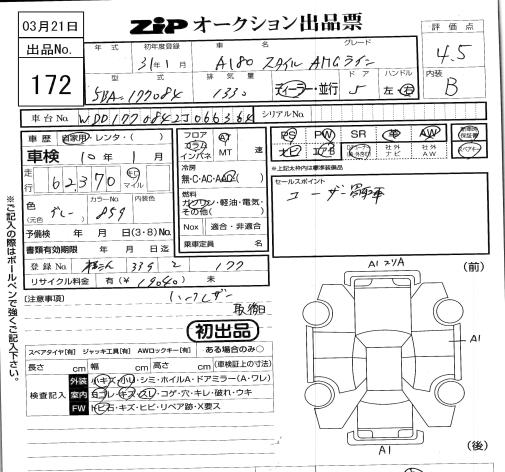 03月21日
ZIP オークション出品票
評価点
4.5
出品No.
172
年式 初年度登録 車名 グレード
31年1月 A180 スタイル AMGライン
型式 排気量 ドア ハンドル
5BA-177084 1330 ディーラー・並行 5 左・右
内装
B
車台No. WDD1770842J066364 シリアルNo.
車歴 自家用・レンタ・( )
車検 10年1月
走行 62370 km マイル
フロア コラム インパネ AT MT 速
冷房 無・C・AC・AAC
燃料 ガソリン・軽油・電気・その他( )
Nox 適合・非適合
乗車定員 名
PS PW SR 革 AW 新車時保証書
ナビ エアB 社外ナビ 社外AW スペアキー
※上記太枠は標準装備品
色 (元色) グレー カラーNo. 859 内装色
予備検 年 月 日(3・8)No.
書類有効期限 年 月 日迄
登録No. 339 177
リサイクル料金 有(¥ 19040) 未
セールスポイント
ユーザー買取車
(注意事項)
ハーフレザー
取後日
初出品
スペアタイヤ[有] ジャッキ工具[有] AWロックキー[有] ある場合のみ○
長さ cm 幅 cm 高さ cm (車検証上の寸法)
検査記入
外装 小キズ・小U・シミ・ホイルA・ドアミラー(A・ワレ)
室内 ヨゴレ・キズ・スレ・コゲ・穴・キレ・破れ・ウキ
FW トビ石・キズ・ヒビ・リペア跡・X要ス
※ご記入の際はボールペンで強くご記入下さい。
A1 スリA
(前)
A1
A1
(後)